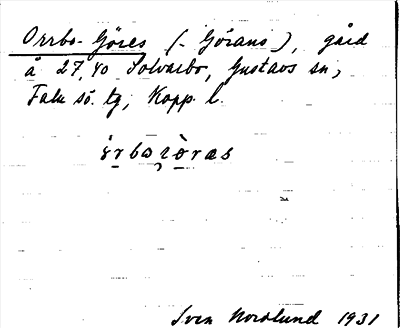 Orrbo-Göres (- Görans), gård
å 27,40 Solvarbo, Gustavs sn,
Falu sö. tg, Kopp. l.
Sven Norslund 1931